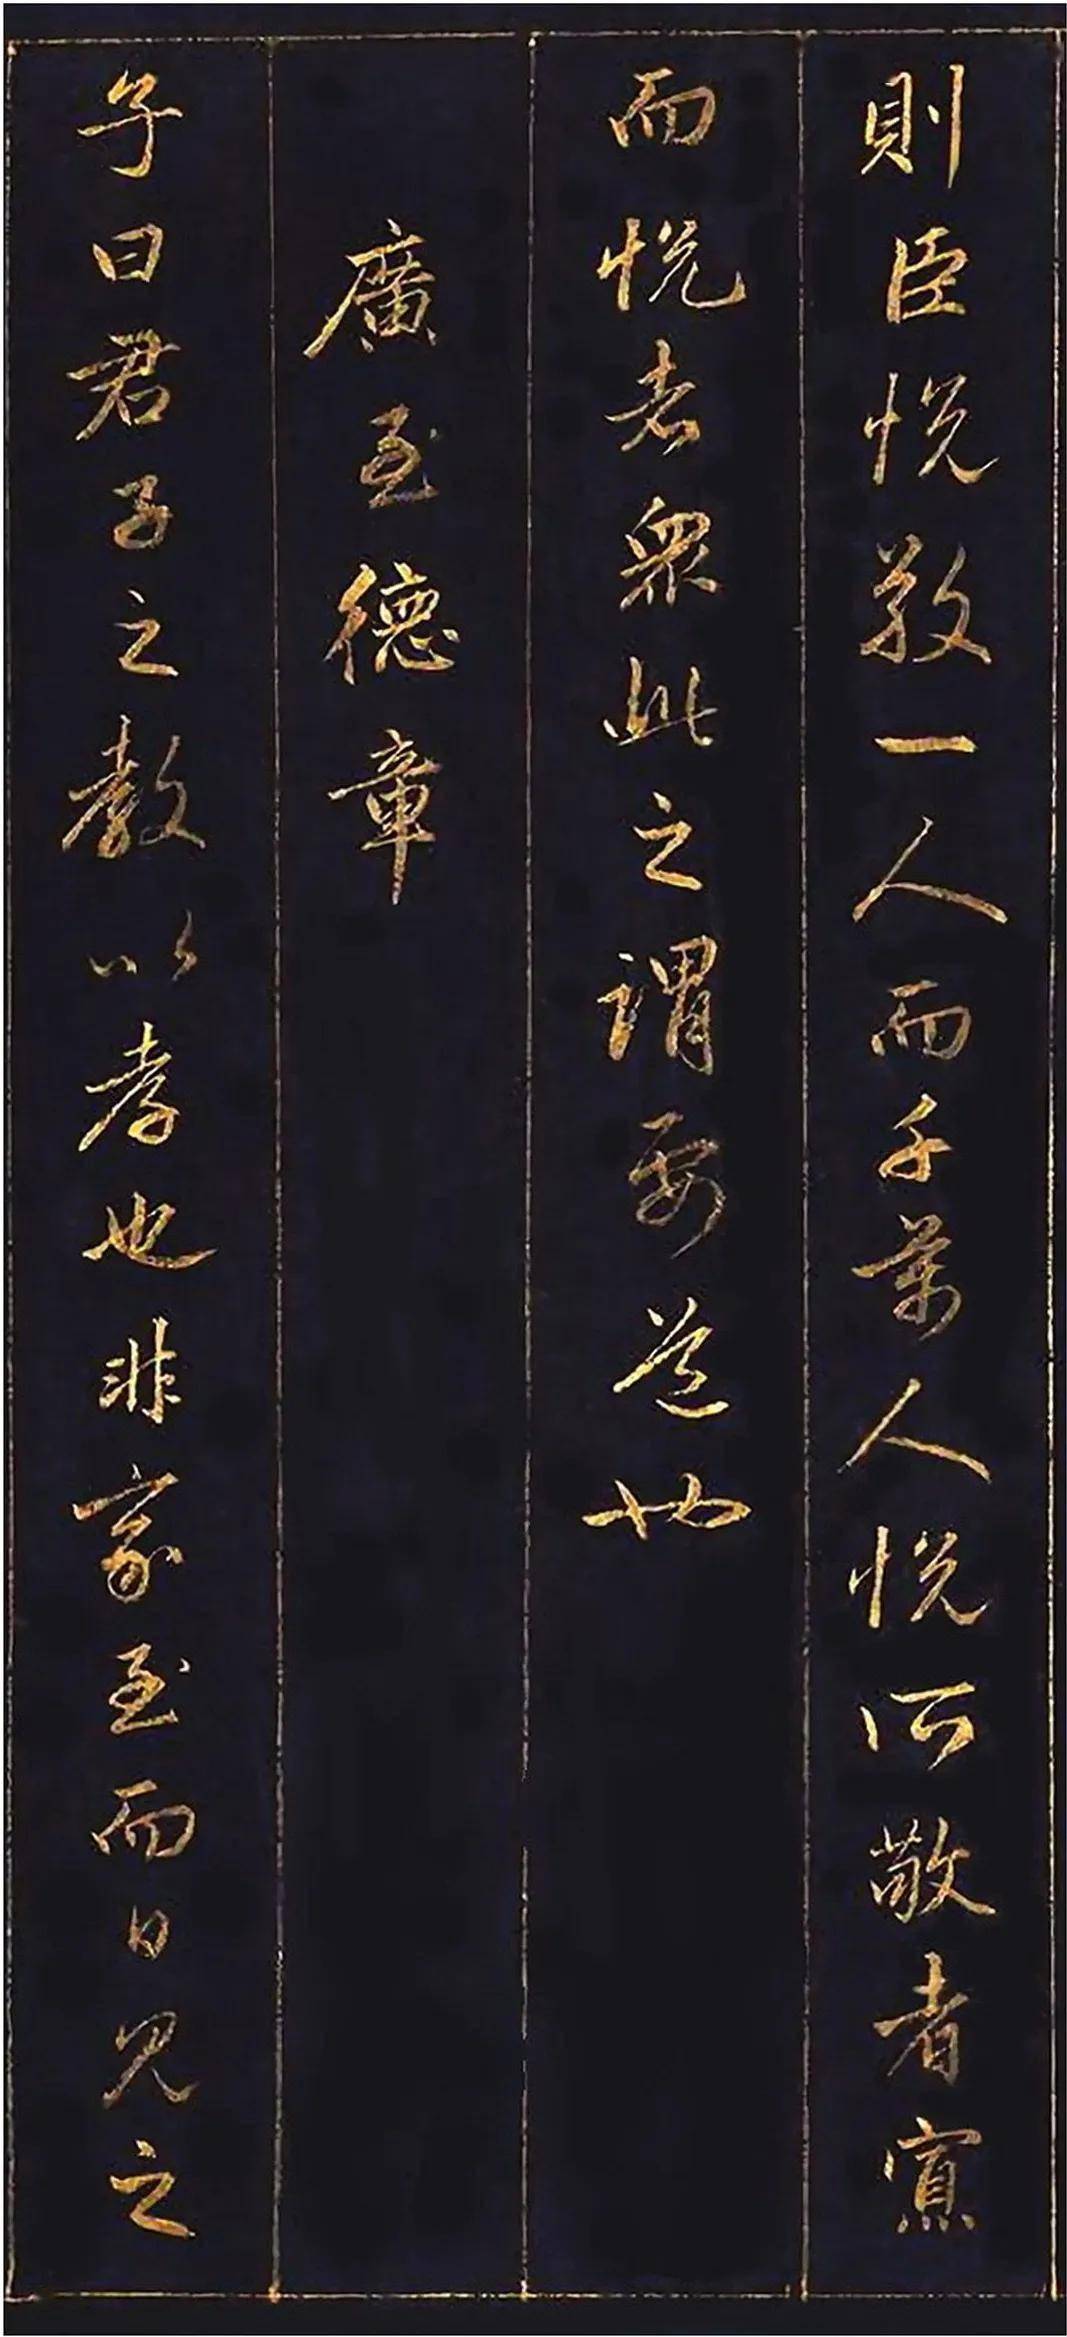 則臣悅敬一人而千萬人悅所敬者寡
而悅者眾此之謂要道也
廣至德章
子曰君子之教以孝也非家至而日見之